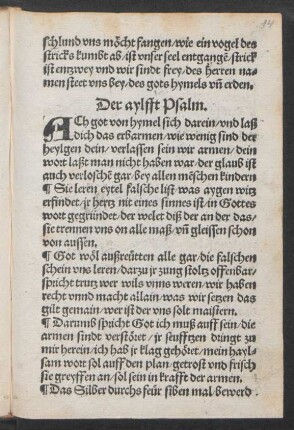 14
schlund vns möcht fangen/wie ein vogel des
stricks kumbt ab/ist vnser seel entgangẽ/strick
ist entzwey vnd wir sindt frey/des herren na-
men steet vns bey/des gots hymels vñ erden.
Der aylfft Psalm.
ACh got von hymel sich darein/vnd laß
dich das erbarmen/wie wenig sind der
heylgen dein/verlassen sein wir armen/dein
wort laßt man nicht haben war/der glaub ist
auch verloschẽ gar/bey allen mẽschen kindern
¶ Sie leren eytel falsche list/was aygen witz
erfindet/jr hertz nit eines sinnes ist/in Gottes
wort gegründet/der welet diß der an der das/
sie trennen vns on alle maß/vñ gleissen schon
von aussen.
¶ Got wöl außreütten alle gar/die falschen
schein vns leren/darzu jr zung stoltz offenbar/
spricht trutz wer wils vnns weren/wir haben
recht vnnd macht allain/was wir setzen das
gilt gemain/wer ist der vns solt maistern.
¶ Darumb spricht Got ich muß auff sein/die
armen sindt verstöret/jr seufftzen dringt zu
mir herein/ich hab jr klag gehöret/mein hayl-
sam wort sol auff den plan/getrost vnd frisch
sie greyffen an/sol sein in krafft der armen.
¶ Das Silber durchs feür siben mal/bewerd